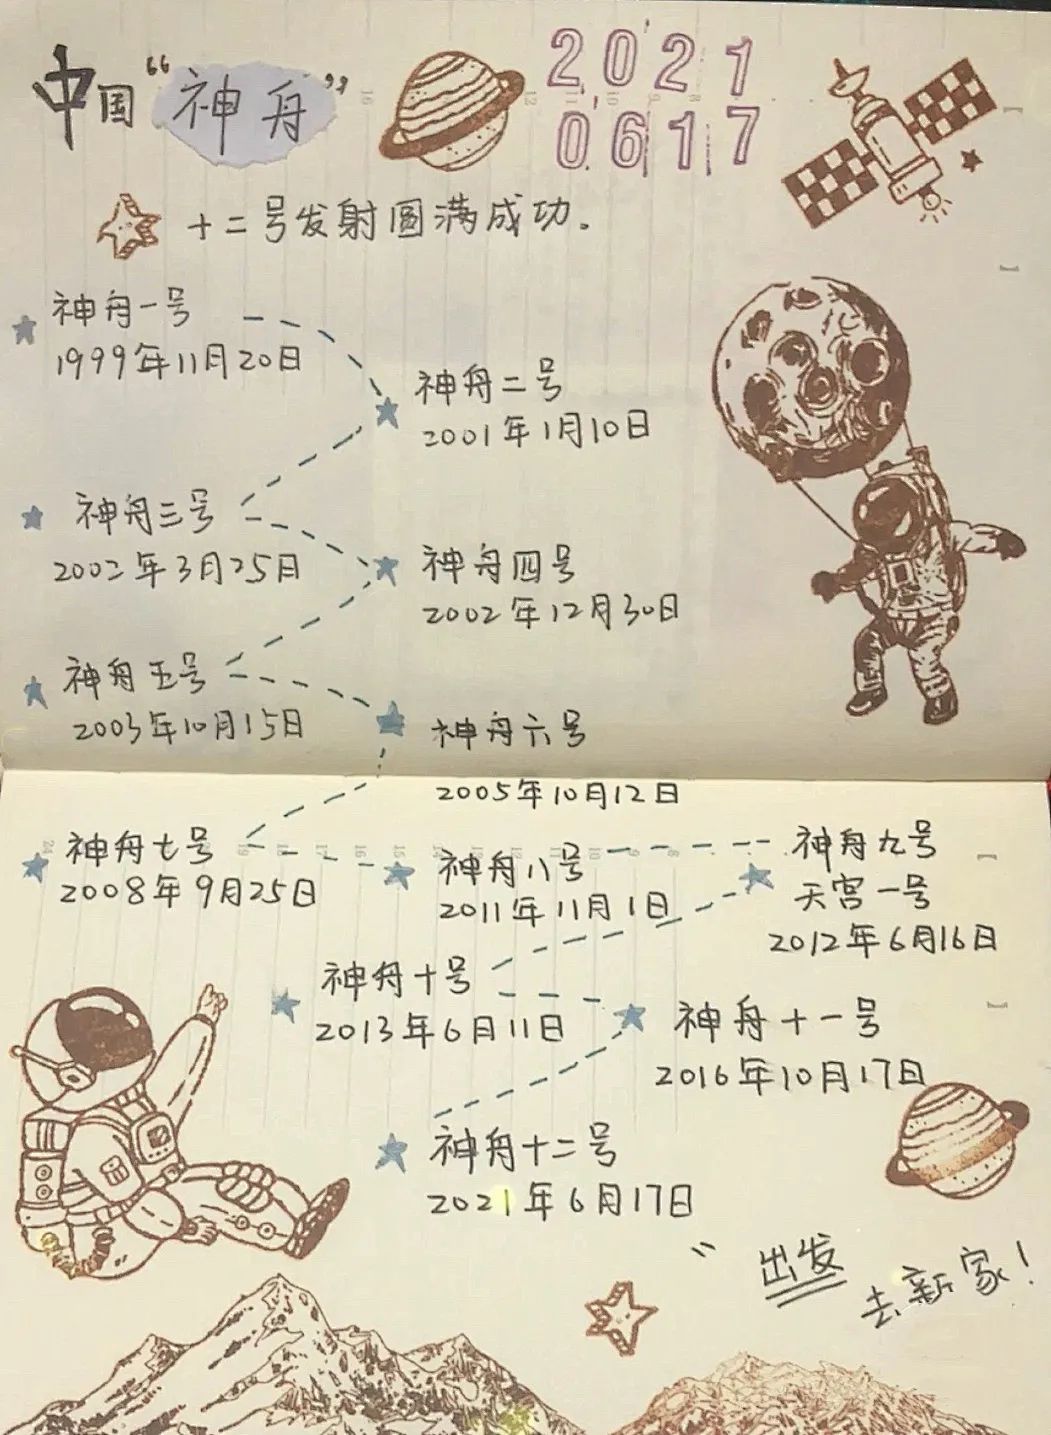 中国“神舟”
2021
0617
十二号发射圆满成功.
神舟一号
1999年11月20日
神舟二号
2001年1月10日
神舟三号
2002年3月25日
神舟四号
2002年12月30日
神舟五号
2003年10月15日
神舟六号
2005年10月12日
神舟七号
2008年9月25日
神舟八号
2011年11月1日
神舟九号
天宫一号
2012年6月16日
神舟十号
2013年6月11日
神舟十一号
2016年10月17日
神舟十二号
2021年6月17日
出发
去新家!